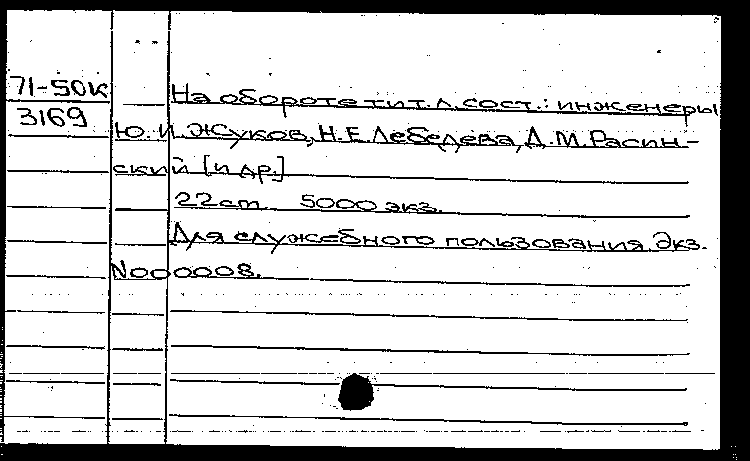 71-50к
3169
На обороте тит. л. сост.: инженеры
Ю. И. Жуков, Н. Е. Лебедева, Д. М. Расин-
ский [и др.]
22 cm 5000 экз.
Для служебного пользования. Экз.
N000008.